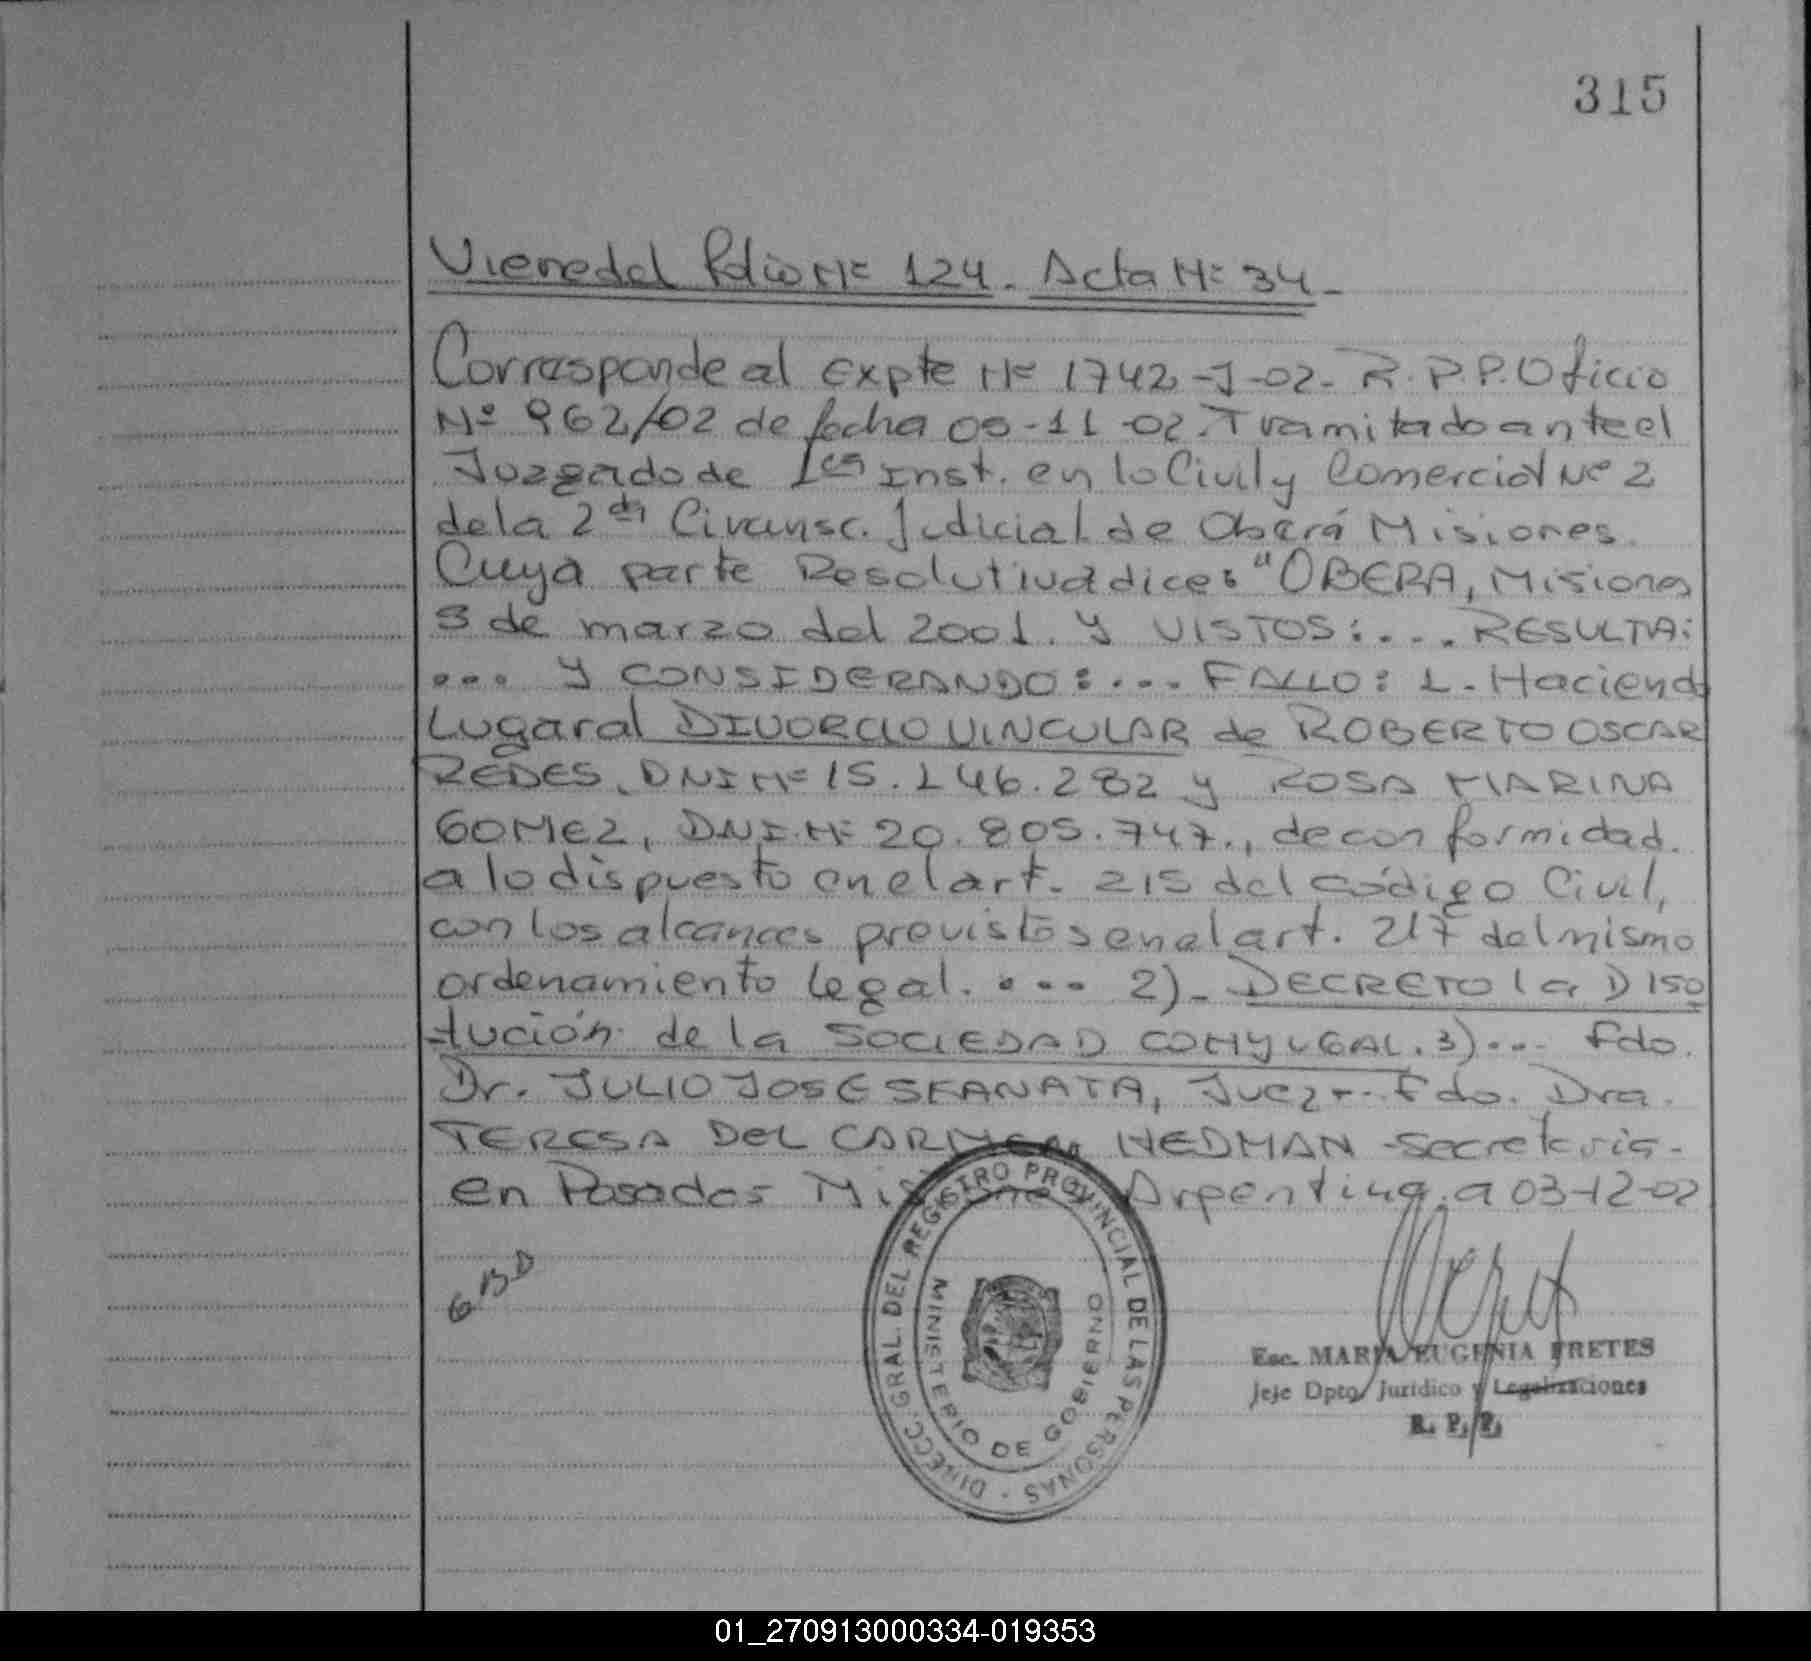 315
Viene del Folio Nº 124. Acta Nº 34.-
Corresponde al Expte Nº 1742-J-02- R.P.P. Oficio
Nº 962/02 de fecha 05-11-02. Tramitado ante el
Juzgado de 1era Inst. en lo Civil y Comercial Nº 2
de la 2da Circunsc. Judicial de Oberá Misiones.
Cuya parte Resolutiva dice: "OBERA, Misiones
de marzo del 2001. Y VISTOS:.... RESULTA:
... Y CONSIDERANDO:.... FALLO: 1.- Haciendo
Lugar al DIVORCIO VINCULAR de ROBERTO OSCAR
REDES, DNI Nº 15.146.282 y ROSA MARINA
GOMEZ, DNI. Nº 20.805.747., de conformidad.
a lo dispuesto en el art. 215 del código Civil,
con los alcances previstos en el art. 217 del mismo
ordenamiento legal. .... 2).- DECRETO la DISO
lución de la SOCIEDAD CONYUGAL. 3)... Fdo.
Dr. JULIO JOSE SFANATA, Juez-.- Fdo. Dra.
TERESA DEL CARMEN HEDMAN -Secretaria-
en Posadas Misiones Argentina. a 03-12-02
GBD
DIRECC. GRAL. DEL REGISTRO PROVINCIAL DE LAS PERSONAS -
MINISTERIO DE GOBIERNO
Esc. MARIA EUGENIA FRETES
Jefe Dpto Jurídico y Legalizaciones
R. P. P.
01_270913000334-019353